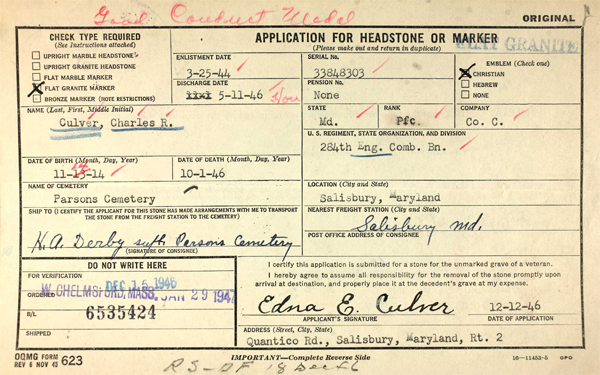 Good Conduct Medal
ORIGINAL
CHECK TYPE REQUIRED
(See Instructions attached)
UPRIGHT MARBLE HEADSTONE
UPRIGHT GRANITE HEADSTONE
FLAT MARBLE MARKER
X FLAT GRANITE MARKER
BRONZE MARKER (NOTE RESTRICTIONS)
APPLICATION FOR HEADSTONE OR MARKER
(Please make out and return in duplicate)
FLAT GRANITE
ENLISTMENT DATE
3-25-44
DISCHARGE DATE
5-11-46 Hon
SERIAL No.
33848303
PENSION No.
None
EMBLEM (Check one)
X CHRISTIAN
HEBREW
NONE
NAME (Last, First, Middle Initial)
Culver, Charles R.
STATE
Md.
RANK
Pfc.
COMPANY
Co. C.
U. S. REGIMENT, STATE ORGANIZATION, AND DIVISION
284th Eng. Comb. Bn.
DATE OF BIRTH (Month, Day, Year)
11- -14
DATE OF DEATH (Month, Day, Year)
10-1-46
NAME OF CEMETERY
Parsons Cemetery
LOCATION (City and State)
Salisbury, Maryland
SHIP TO (I CERTIFY THE APPLICANT FOR THIS STONE HAS MADE ARRANGEMENTS WITH ME TO TRANSPORT THE STONE FROM THE FREIGHT STATION TO THE CEMETERY)
NEAREST FREIGHT STATION (City and State)
Salisbury Md.
POST OFFICE ADDRESS OF CONSIGNEE
H. A. Derby supt. Parsons Cemetery
(SIGNATURE OF CONSIGNEE)
DO NOT WRITE HERE
FOR VERIFICATION
DEC 16 1946
ORDERED
W. CHELMSFORD, MASS. JAN 29 1947
B/L
6535424
SHIPPED
I certify this application is submitted for a stone for the unmarked grave of a veteran.
I hereby agree to assume all responsibility for the removal of the stone promptly upon
arrival at destination, and properly place it at the decedent's grave at my expense.
Edna E. Culver 12-12-46
APPLICANT'S SIGNATURE DATE OF APPLICATION
ADDRESS (Street, City, State)
Quantico Rd., Salisbury, Maryland, Rt. 2
OQMG FORM
REV 6 NOV 45 623
IMPORTANT—Complete Reverse Side
16—11453-5 GPO